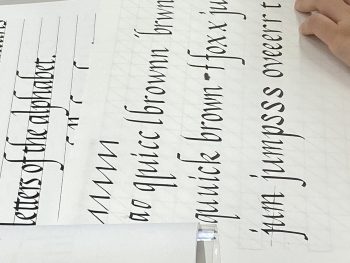 letters of the alphabet.
ao qpuicc lbrownn brwn
quuick brown foxx ju
jum jumpsss oveeerr t